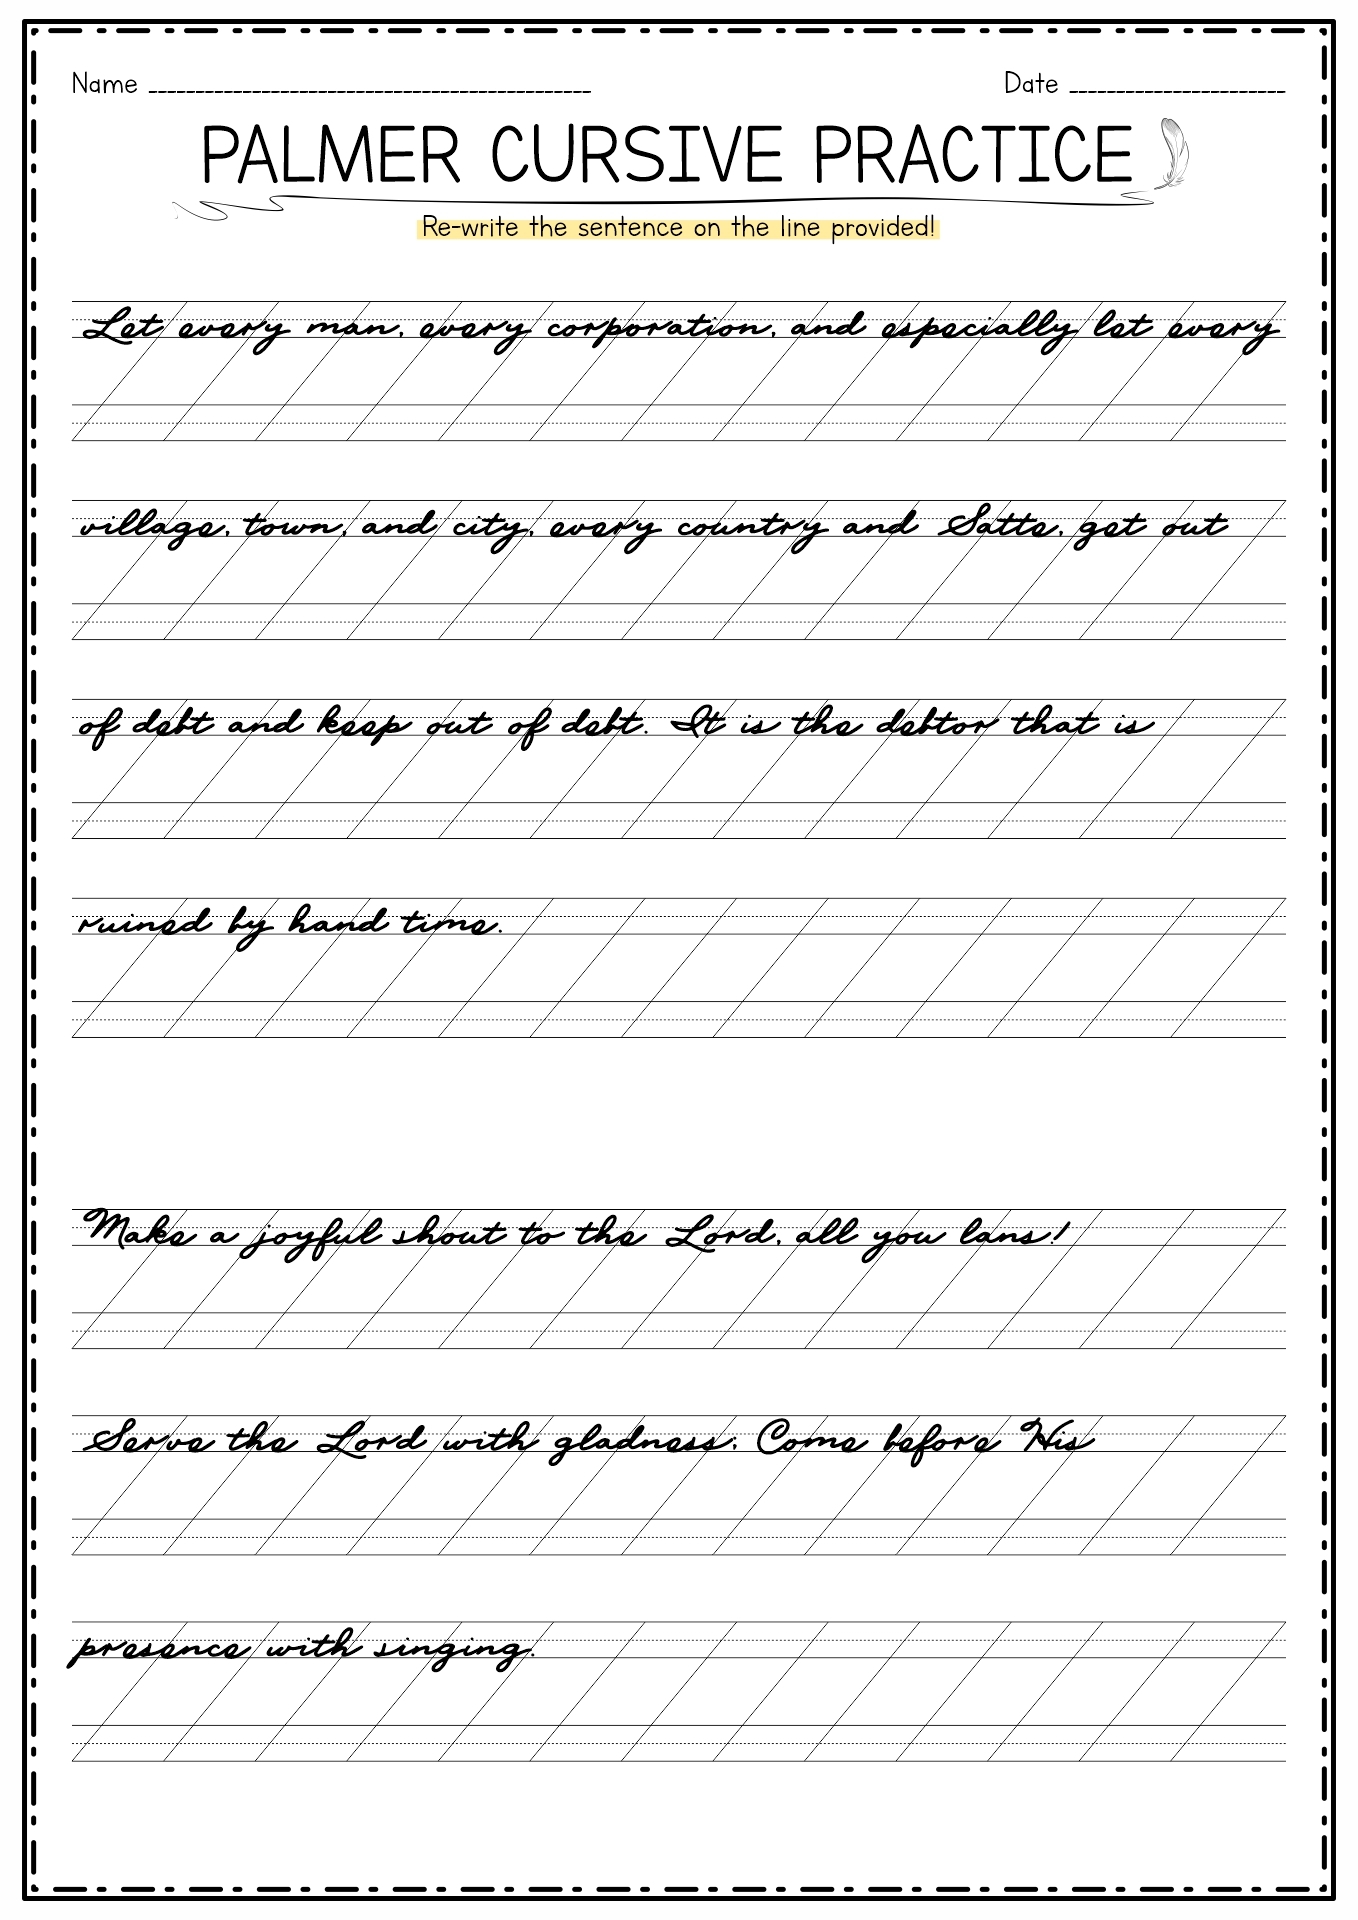 Name
Date
PALMER CURSIVE PRACTICE
Re-write the sentence on the line provided!
Let every man, every corporation, and especially let every
village, town, and city, every country and Satte, get out
of debt and keep out of debt. It is the debtor that is
ruined by hand time.
Make a joyful shout to the Lord, all you lans!
Serve the Lord with gladness; Come before His
presence with singing.